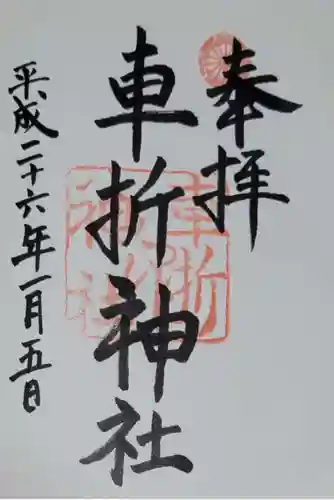 奉拝
車折神社
平成二十六年一月五日
車折
神社